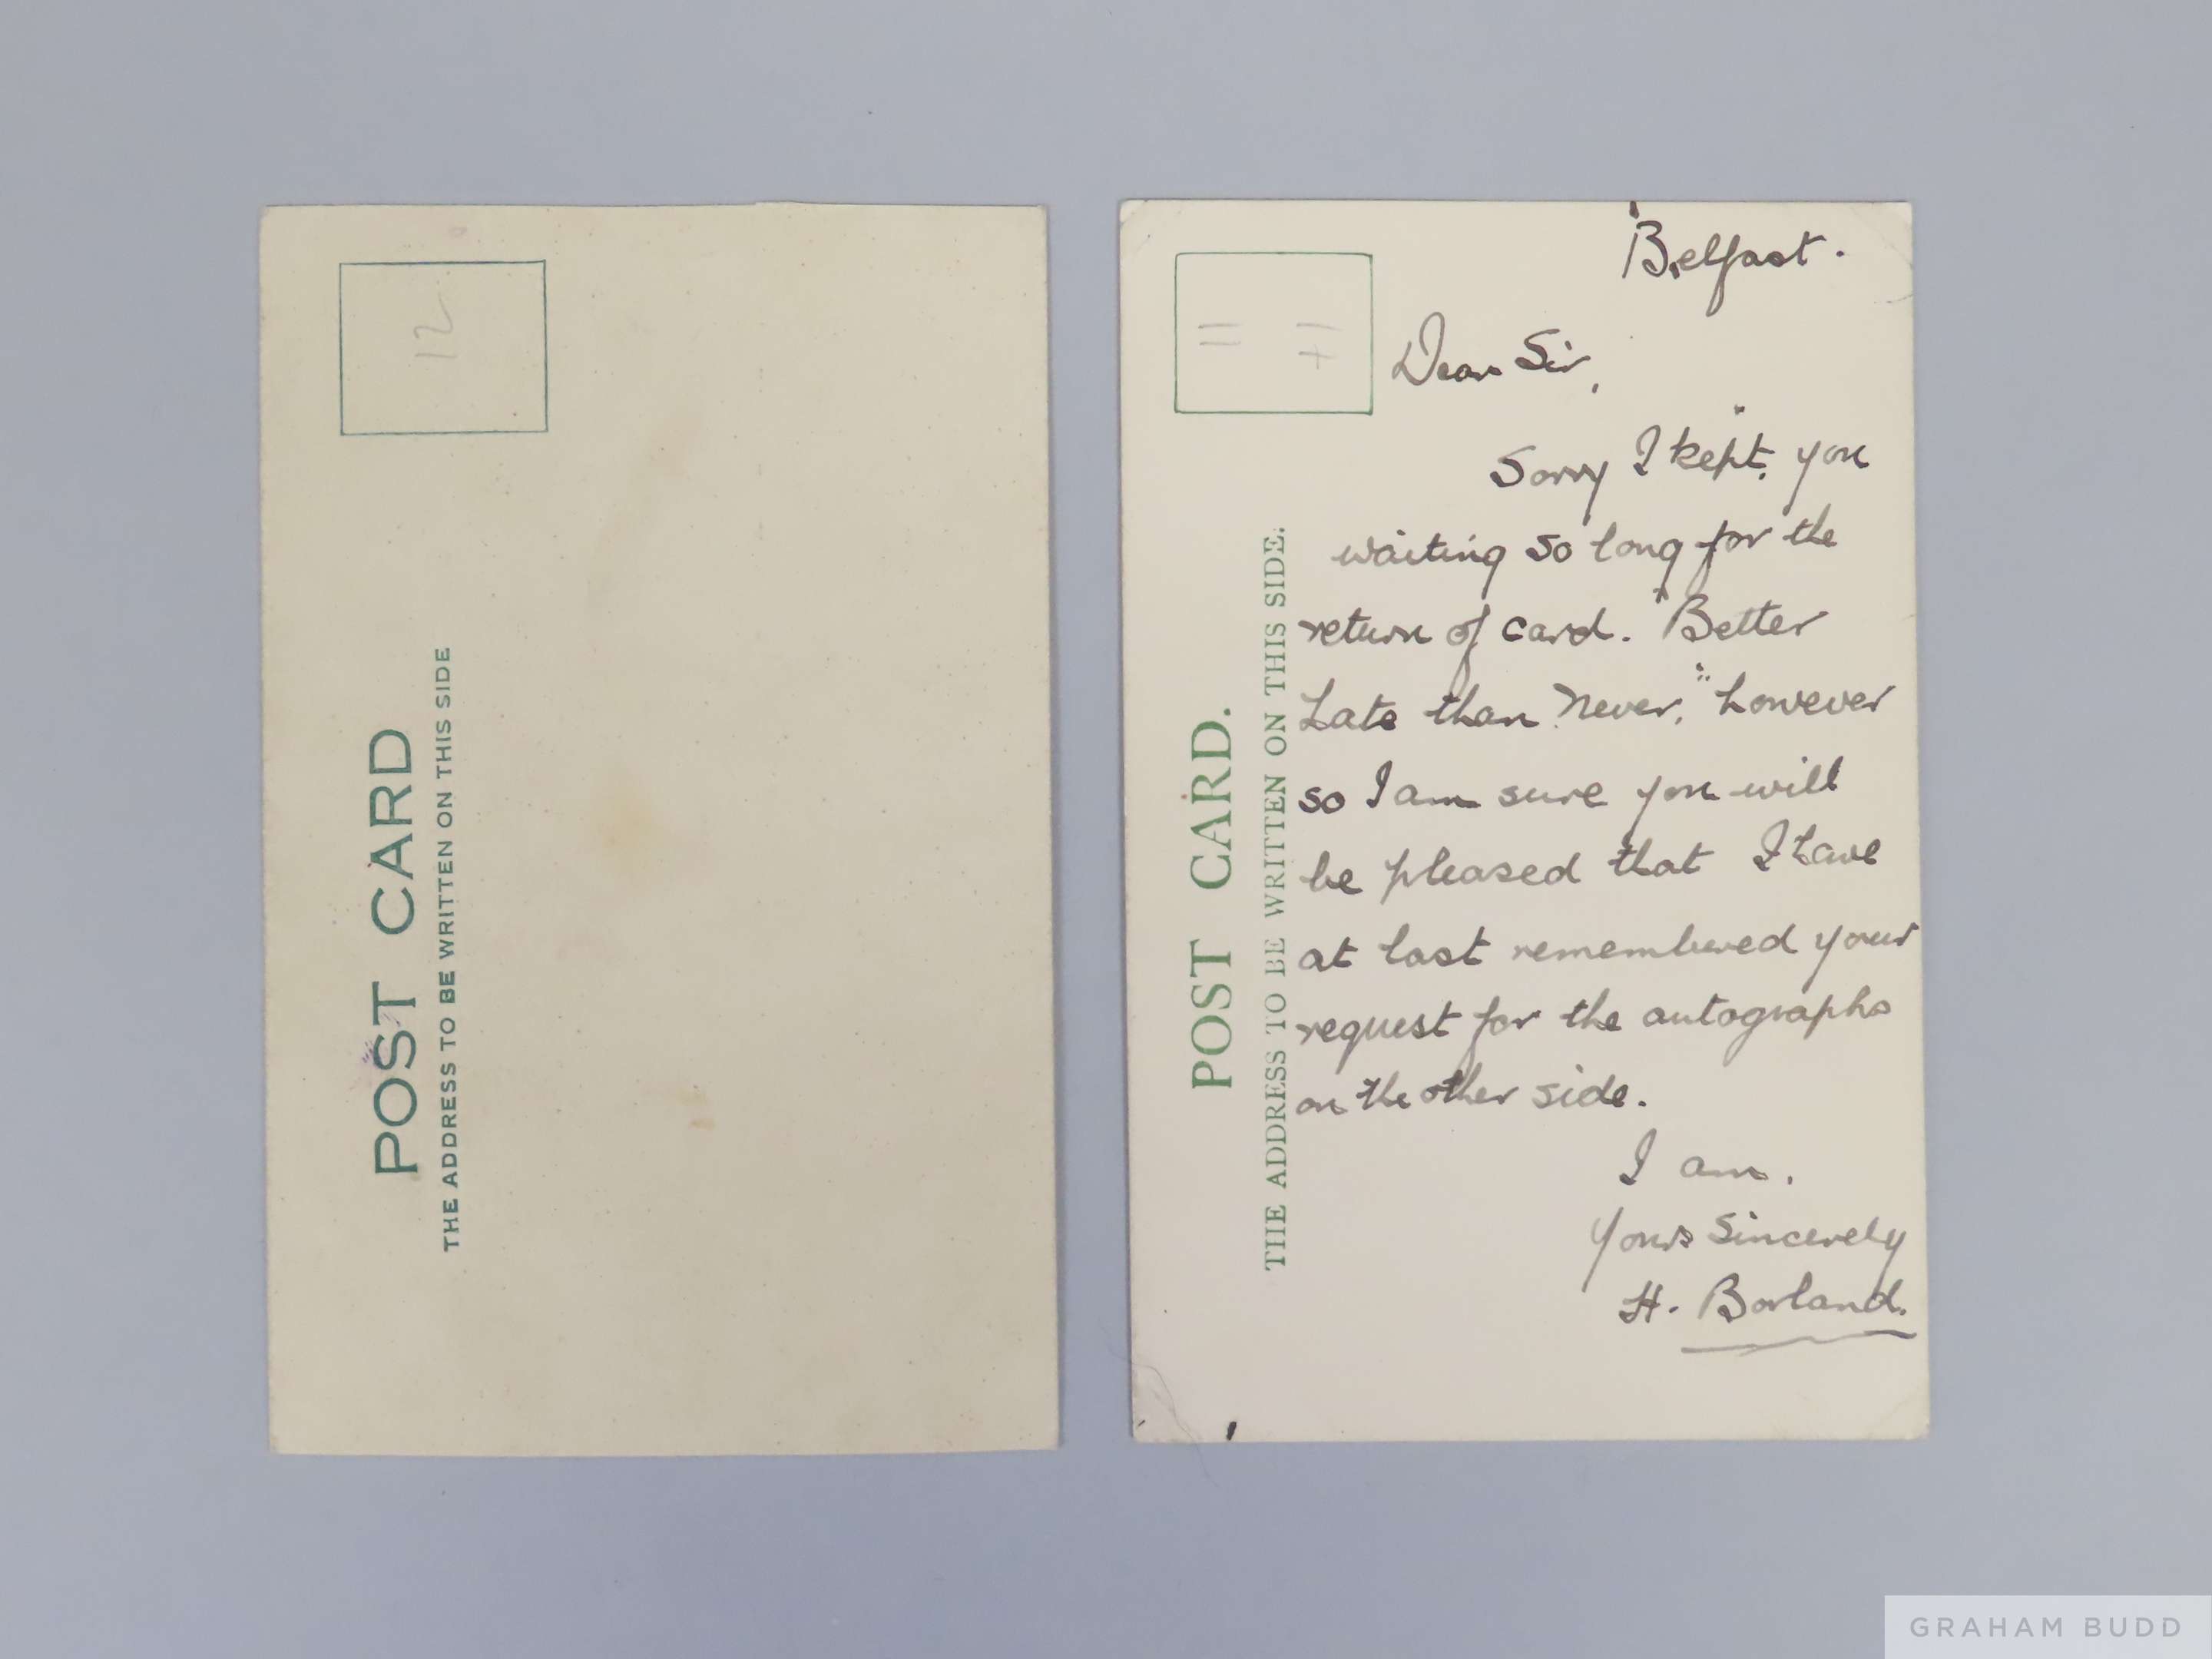 12
POST CARD
THE ADDRESS TO BE WRITTEN ON THIS SIDE
POST CARD.
THE ADDRESS TO BE WRITTEN ON THIS SIDE.
Belfast.
Dear Sir,
Sorry I kept you
waiting so long for the
return of card. "Better
Late than Never," however
so I am sure you will
be pleased that I have
at last remembered your
request for the autographs
on the other side.
I am.
Yours Sincerely
H. Borland.
GRAHAM BUDD